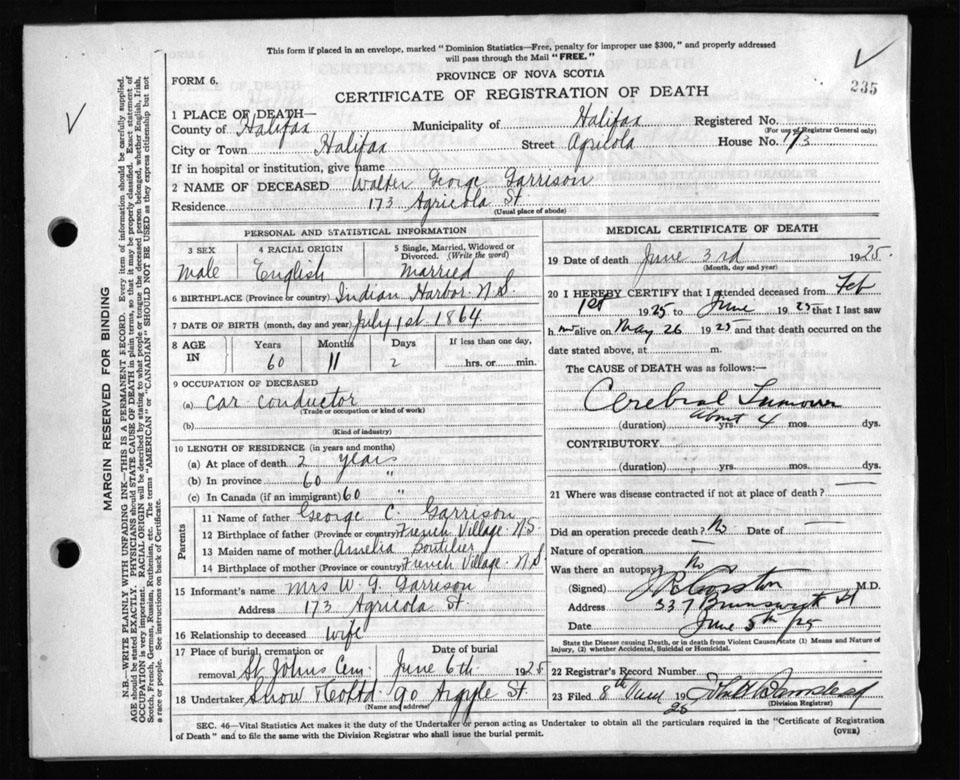 This form if placed in an envelope, marked "Dominion Statistics—Free, penalty for improper use $300," and properly addressed
will pass through the Mail "FREE."
FORM 6.
PROVINCE OF NOVA SCOTIA
CERTIFICATE OF REGISTRATION OF DEATH
235
1 PLACE OF DEATH—
County of Halifax Municipality of Halifax Registered No.
(For use of Registrar General only)
City or Town Halifax Street Agricola House No. 173
If in hospital or institution, give name
2 NAME OF DECEASED Walter George Garrison
Residence 173 Agricola St
(Usual place of abode)
PERSONAL AND STATISTICAL INFORMATION
3 SEX 4 RACIAL ORIGIN 5 Single, Married, Widowed or
Divorced. (Write the word)
Male English Married
6 BIRTHPLACE (Province or country) Indian Harbor N.S.
7 DATE OF BIRTH (month, day and year) July 1st 1864
8 AGE IN Years Months Days If less than one day,
60 11 2 hrs. or min.
9 OCCUPATION OF DECEASED
(a) Car Conductor
(Trade or occupation or kind of work)
(b)
(Kind of industry)
10 LENGTH OF RESIDENCE (in years and months)
(a) At place of death 2 years
(b) In province 60 "
(c) In Canada (if an immigrant) 60 "
Parents
11 Name of father George C. Garrison
12 Birthplace of father (Province or country) French Village N.S
13 Maiden name of mother Amelia Boutilier
14 Birthplace of mother (Province or country) French Village N.S
15 Informant's name Mrs W. G. Garrison
Address 173 Agricola St.
16 Relationship to deceased Wife
17 Place of burial, cremation or Date of burial
removal St Johns Cem. June 6th 1925
18 Undertaker Snow & Co Ltd 90 Argyle St.
(Name and address)
MEDICAL CERTIFICATE OF DEATH
19 Date of death June 3rd 1925.
(Month, day and year)
20 I HEREBY CERTIFY that I attended deceased from Feb
1st 1925 to June 1925 that I last saw
h m alive on May 26 1925 and that death occurred on the
date stated above, at m.
The CAUSE of DEATH was as follows:—
Cerebral Tumour
(duration) about yrs. 4 mos. dys.
CONTRIBUTORY
(duration) yrs. mos. dys.
21 Where was disease contracted if not at place of death? —
Did an operation precede death? No Date of —
Nature of operation —
Was there an autopsy? No
(Signed) M.D.
Address 337 Brunswick St
Date June 5th / 25
State the Disease causing Death, or in death from Violent Causes, state (1) Means and Nature of
Injury, (2) whether Accidental, Suicidal or Homicidal.
22 Registrar's Record Number
23 Filed 8th June 1925
(Division Registrar)
SEC. 46—Vital Statistics Act makes it the duty of the Undertaker or person acting as Undertaker to obtain all the particulars required in the "Certificate of Registration
of Death" and to file the same with the Division Registrar who shall issue the burial permit.
(OVER)
MARGIN RESERVED FOR BINDING
N.B.—WRITE PLAINLY WITH UNFADING INK—THIS IS A PERMANENT RECORD. Every item of information should be carefully supplied.
AGE should be stated EXACTLY. PHYSICIANS should STATE CAUSE OF DEATH in plain terms, so that it may be properly classified. Exact statement of
OCCUPATION is very important. RACIAL ORIGIN will be described by stating to what people or tongue the deceased person belonged, whether English, Irish,
Scotch, French, German, Russian, Ruthenian, etc. The terms "AMERICAN" or "CANADIAN" SHOULD NOT BE USED as they express citizenship but not
a race or people. See instructions on back of Certificate.